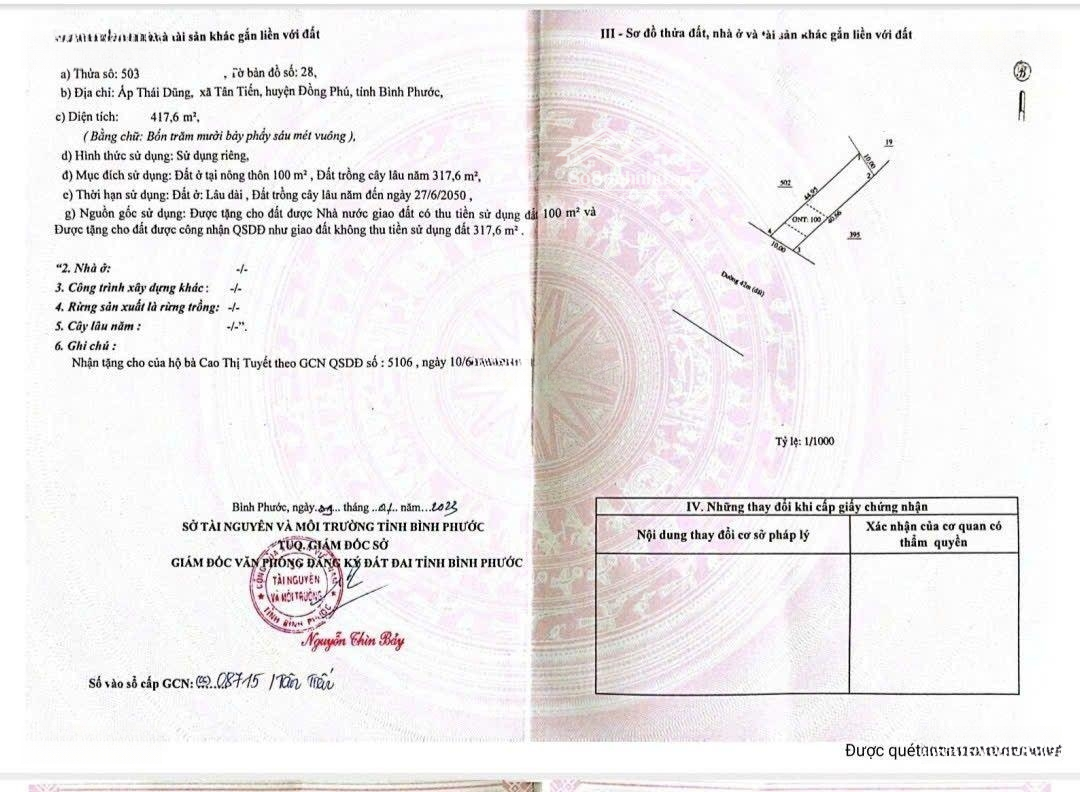 tài sản khác gắn liền với đất
a) Thửa số: 503 , Tờ bản đồ số: 28,
b) Địa chỉ: Ấp Thái Dũng, xã Tân Tiến, huyện Đồng Phú, tỉnh Bình Phước,
c) Diện tích: 417,6 m²,
( Bằng chữ: Bốn trăm mười bảy phẩy sáu mét vuông ),
d) Hình thức sử dụng: Sử dụng riêng,
đ) Mục đích sử dụng: Đất ở tại nông thôn 100 m² , Đất trồng cây lâu năm 317,6 m²,
e) Thời hạn sử dụng: Đất ở: Lâu dài , Đất trồng cây lâu năm đến ngày 27/6/2050 ,
g) Nguồn gốc sử dụng: Được tặng cho đất được Nhà nước giao đất có thu tiền sử dụng đất 100 m² và
Được tặng cho đất được công nhận QSDĐ như giao đất không thu tiền sử dụng đất 317,6 m² .
“2. Nhà ở: -/-
3. Công trình xây dựng khác : -/-
4. Rừng sản xuất là rừng trồng: -/-
5. Cây lâu năm : -/-”.
6. Ghi chú :
Nhận tặng cho của hộ bà Cao Thị Tuyết theo GCN QSDĐ số : 5106 , ngày 10/6
Bình Phước, ngày tháng ..01.. năm...2023
SỞ TÀI NGUYÊN VÀ MÔI TRƯỜNG TỈNH BÌNH PHƯỚC
TUQ. GIÁM ĐỐC SỞ
GIÁM ĐỐC VĂN PHÒNG ĐĂNG KÝ ĐẤT ĐAI TỈNH BÌNH PHƯỚC
TÀI NGUYÊN
VÀ MÔI TRƯỜNG
TỈNH BÌNH PHƯỚC
Nguyễn Thìn Bảy
Số vào sổ cấp GCN: (CS) 08715 / Tân Tiến
III - Sơ đồ thửa đất, nhà ở và tài sản khác gắn liền với đất
B
19
10.00
2
502
44.95
ONT: 100
40.66
395
4
10.00
3
Đường 42m (đất)
Tỷ lệ: 1/1000
IV. Những thay đổi khi cấp giấy chứng nhận
Nội dung thay đổi cơ sở pháp lý
Xác nhận của cơ quan có
thẩm quyền
Được quét